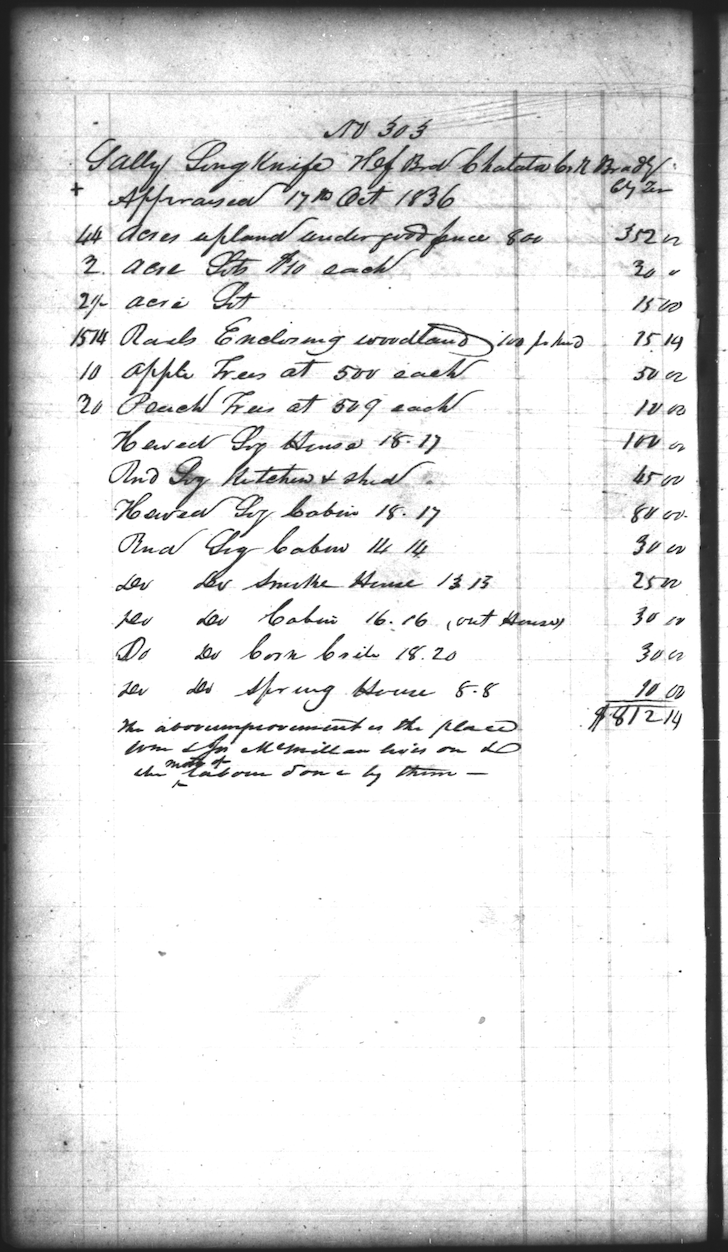 No 303
Sally Long Knife Hlf Brd Chatata Crk Brady
+ Appraised 17th Oct 1836 Cty Ten
44 acres upland under good fence 800 352 00
3 acre Lots $10 each 30 0
2½ acre Lot 15 00
1514 Rails Enclosing woodland 100 pr hnd 15.14
10 apple Trees at 500 each 50 00
20 Peach Trees at 50¢ each 10 00
Hewed Log House 18.17 100 00
Rnd Log Kitchen & shed 45 00
Hewed Log Cabin 18.17 80 00
Rnd Log Cabin 14 14 30 00
Do Do Smoke House 13 13 25 00
Do Do Cabin 16.16 (out House) 30 00
Do Do Corn Crib 18.20 30 00
Do Do Spring House 8-8 10 00
$812 14
the above improvement is the place
Wm & Jos McMillan lives on &
the most of labour done by them —